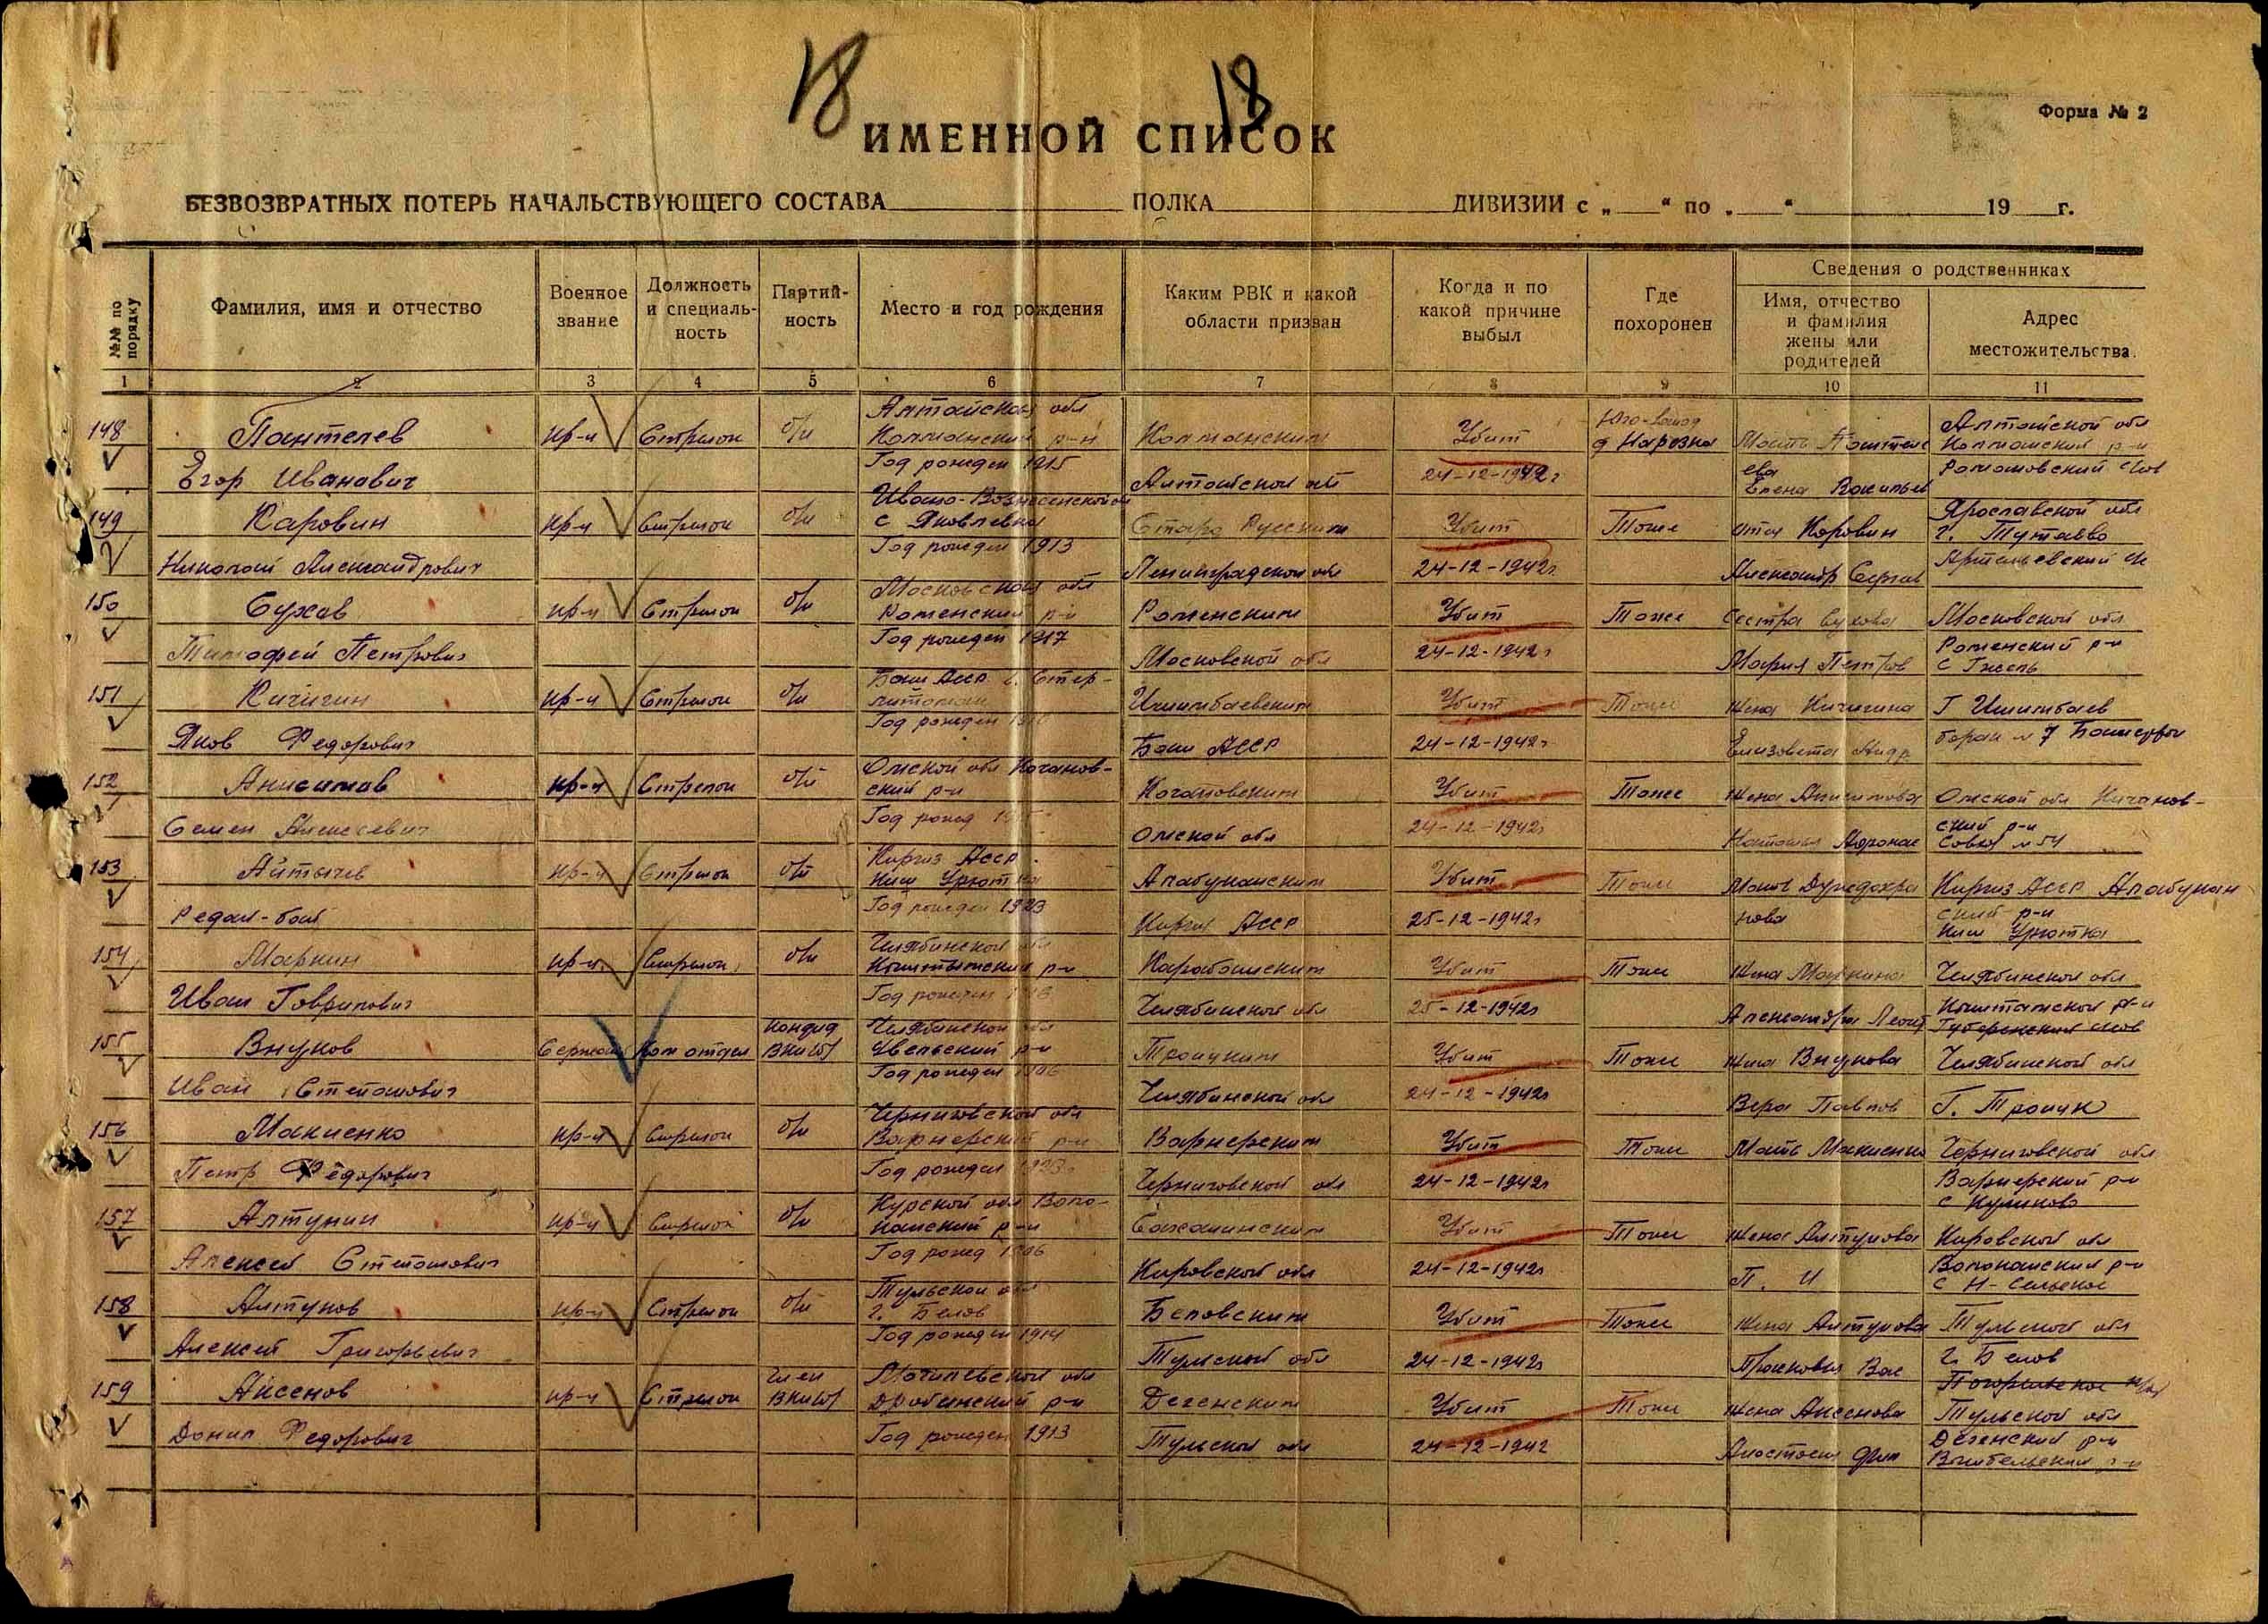 18 18
Форма № 2
ИМЕННОЙ СПИСОК
БЕЗВОЗВРАТНЫХ ПОТЕРЬ НАЧАЛЬСТВУЮЩЕГО СОСТАВА ПОЛКА ДИВИЗИИ с „ “ по „ “ 19 г.
№№ по порядку
Фамилия, имя и отчество
Военное звание
Должность и специаль-ность
Партий-ность
Место и год рождения
Каким РВК и какой области призван
Когда и по какой причине выбыл
Где похоронен
Сведения о родственниках
Имя, отчество и фамилия жены или родителей
Адрес местожительства.
1 2 3 4 5 6 7 8 9 10 11
148 Пантелев Егор Иванович кр-ц Стрелок б/п Алтайской обл Калманский р-н Год рожден 1915 Калманским Алтайской обл Убит 24-12-1942г д Нарезка Мать Пантеле ева Елена Васильев Алтайской обл Калманский р-н
149 Каровин Николай Александрович кр-ц Стрелок б/п Ивано-Вознесенской об с Яковлевка Год рожден 1913 Старо Русским Ленинградской обл Убит 24-12-1942г Тоже отец Коровин Александр Ярославской обл г. Тутаево
150 Сухов Тимофей Петрович кр-ц Стрелок б/п Московской обл Раменский р-н Год рожден 1917 Раменским Московской обл Убит 24-12-1942г Тоже Сестра Сухова Мария Петров Московской обл Раменский р-н с Гжель
151 Кичигин Яков Федорович кр-ц Стрелок б/п Баш Асср г. Стер-литамак Год рожден Ишимбаевским Баш АССР Убит 24-12-1942г Тоже Жена Кичигина Елизовета Андр Г Ишимбаев барак № 7
152 Анисимов Семен Алексеевич кр-ц Стрелок б/п Омской обл Кочанов-ский р-н Год рожд Омской обл Убит 24-12-1942г Тоже Жена Анисимова Омской обл ский р-н Совхоз № 54
153 Айтычев Редал-бай кр-ц Стрелок б/п Киргиз Асср Киш Год рожден 1923 Алабуканским Киргиз АССР Убит 25-12-1942г Тоже Мать нова Киргиз Асср Алабукан ский р-н
154 Маркин Иван Гаврилович кр-ц Стрелок б/п Челябинской Кыштымский р-н Год рожден Карабашским Челябинской обл Убит 25-12-1942г Тоже Жена Маркина Александра Леонт Челябинской обл
155 Внуков Иван Степанович Сержант Ком отдел кандид ВКП(б) Челябинской обл Увельский р-н Год рожден 1906 Троицким Челябинской обл Убит 24-12-1942г Тоже Жена Внукова Вера Павлов Челябинской обл Г. Троицк
156 Макиенко Петр Федорович кр-ц Стрелок б/п Черниговской обл Варнерский р-н Год рожден Варнерским Черниговской обл Убит 24-12-1942г Тоже Мать Макиенко Черниговской обл Варнерский р-н с Куликово
157 Алтунин Алексей Степанович кр-ц Стрелок б/п Курской обл Воло-канский р-н Год рожд 1906 Кировской обл Убит 24-12-1942г Тоже Жена Алтунова П. И Кировской обл Волоканский р-н
158 Алтунов Алексей Григорьевич кр-ц Стрелок б/п Тульской обл г. Белов Год рожден 1914 Беловским Тульской обл Убит 24-12-1942г Тоже Жена Алтунова Прасковья Вас Тульской обл г. Белов
159 Аксенов Данил Федорович кр-ц Стрелок член ВКП(б) Могилевской обл Дрибинский р-н Год рожден 1913 Тульской обл Убит 24-12-1942 Тоже Жена Аксенова Анастасия Фил Тульской обл